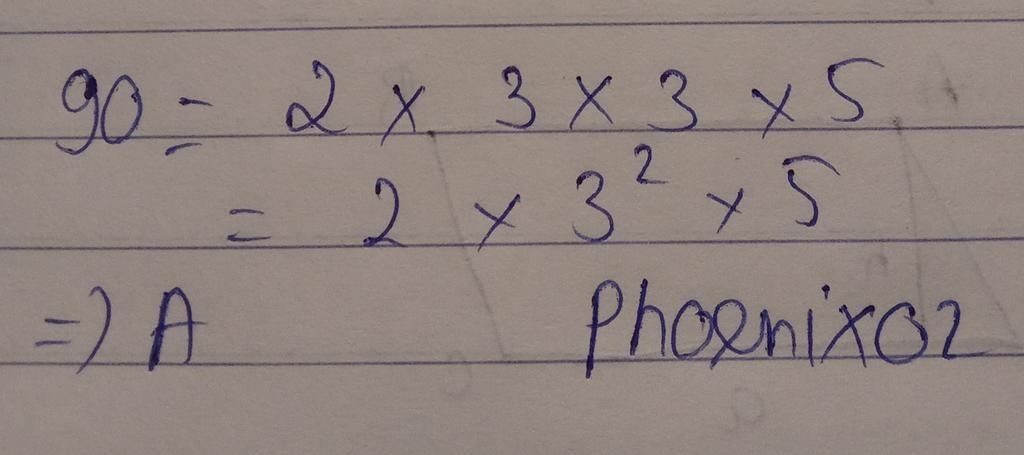 90 = 2 × 3 × 3 × 5
= 2 × 3² × 5
=) A Phoenix02